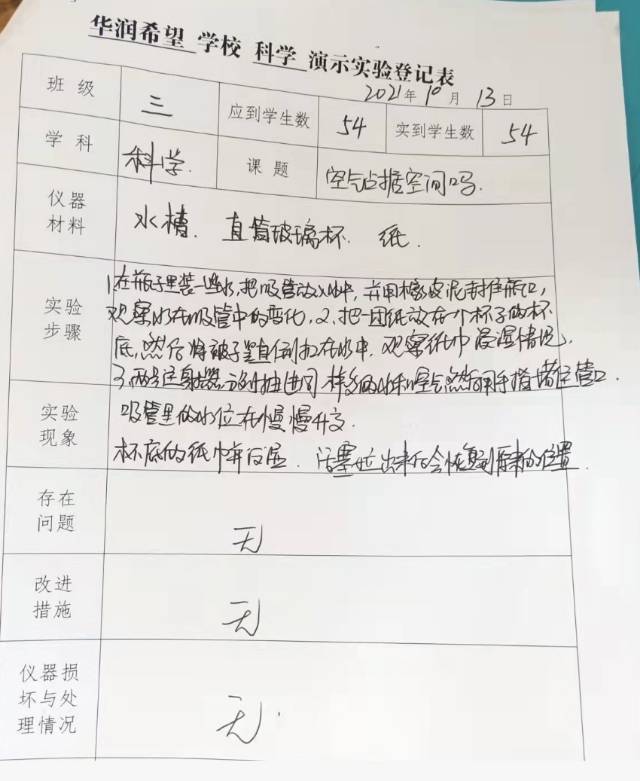 华润希望 学校 科学 演示实验登记表
2021年10月13日
班级 三 应到学生数 54 实到学生数 54
学科 科学 课题 空气占据空间吗
仪器材料 水槽. 直筒玻璃杯. 纸.
实验步骤
1.在瓶子里装一些水,把吸管放入水中,并用橡皮泥封住瓶口,
观察水在吸管中的变化,2、把一团纸放在一个杯子的杯
底,然后将被子竖直倒扣在水中.观察纸巾浸湿情况.
3.两号注射器分别抽进同样多的水和空气然后用手指堵住管口
实验现象
吸管里的水位在慢慢升交
杯底的纸巾 活塞 出来后会恢复到原来的位置.
存在问题 无
改进措施 无
仪器损坏与处理情况 无.